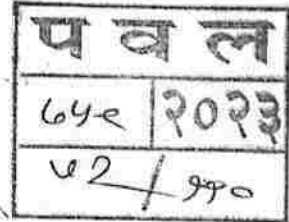 प व ल
७५९ २०२३
५२ / ११०